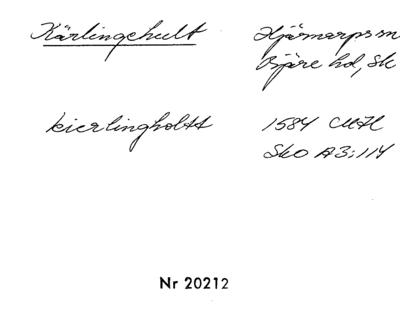 Kärlingehult
Hjärnarps sn
Bjäre hd, Sk
kierlingholtt
1584 CUH
Sko A3:114
Nr 20212